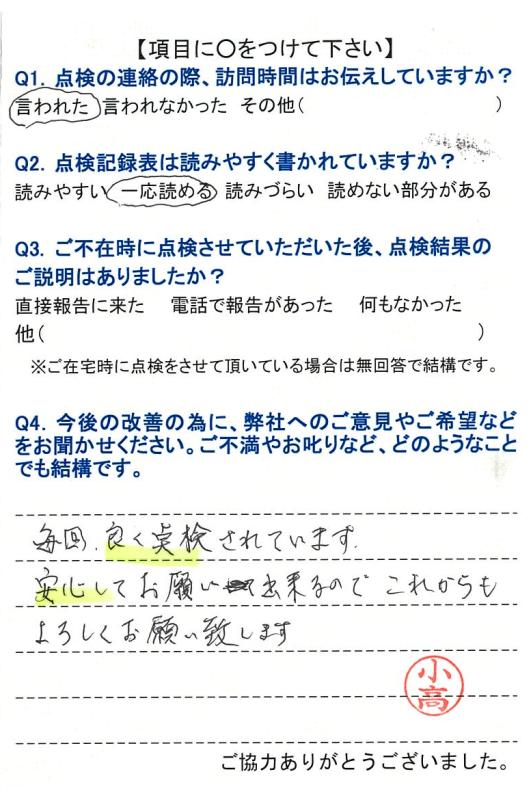 【項目に〇をつけて下さい】
Q1. 点検の連絡の際、訪問時間はお伝えしていますか?
言われた 言われなかった その他( )
Q2. 点検記録表は読みやすく書かれていますか?
読みやすい 一応読める 読みづらい 読めない部分がある
Q3. ご不在時に点検させていただいた後、点検結果の
ご説明はありましたか?
直接報告に来た 電話で報告があった 何もなかった
他( )
※ご在宅時に点検をさせて頂いている場合は無回答で結構です。
Q4. 今後の改善の為に、弊社へのご意見やご希望など
をお聞かせください。ご不満やお叱りなど、どのようなこと
でも結構です。
毎回、良く点検されています.
安心してお願い出来るので これからも
よろしくお願い致します
小高
ご協力ありがとうございました。